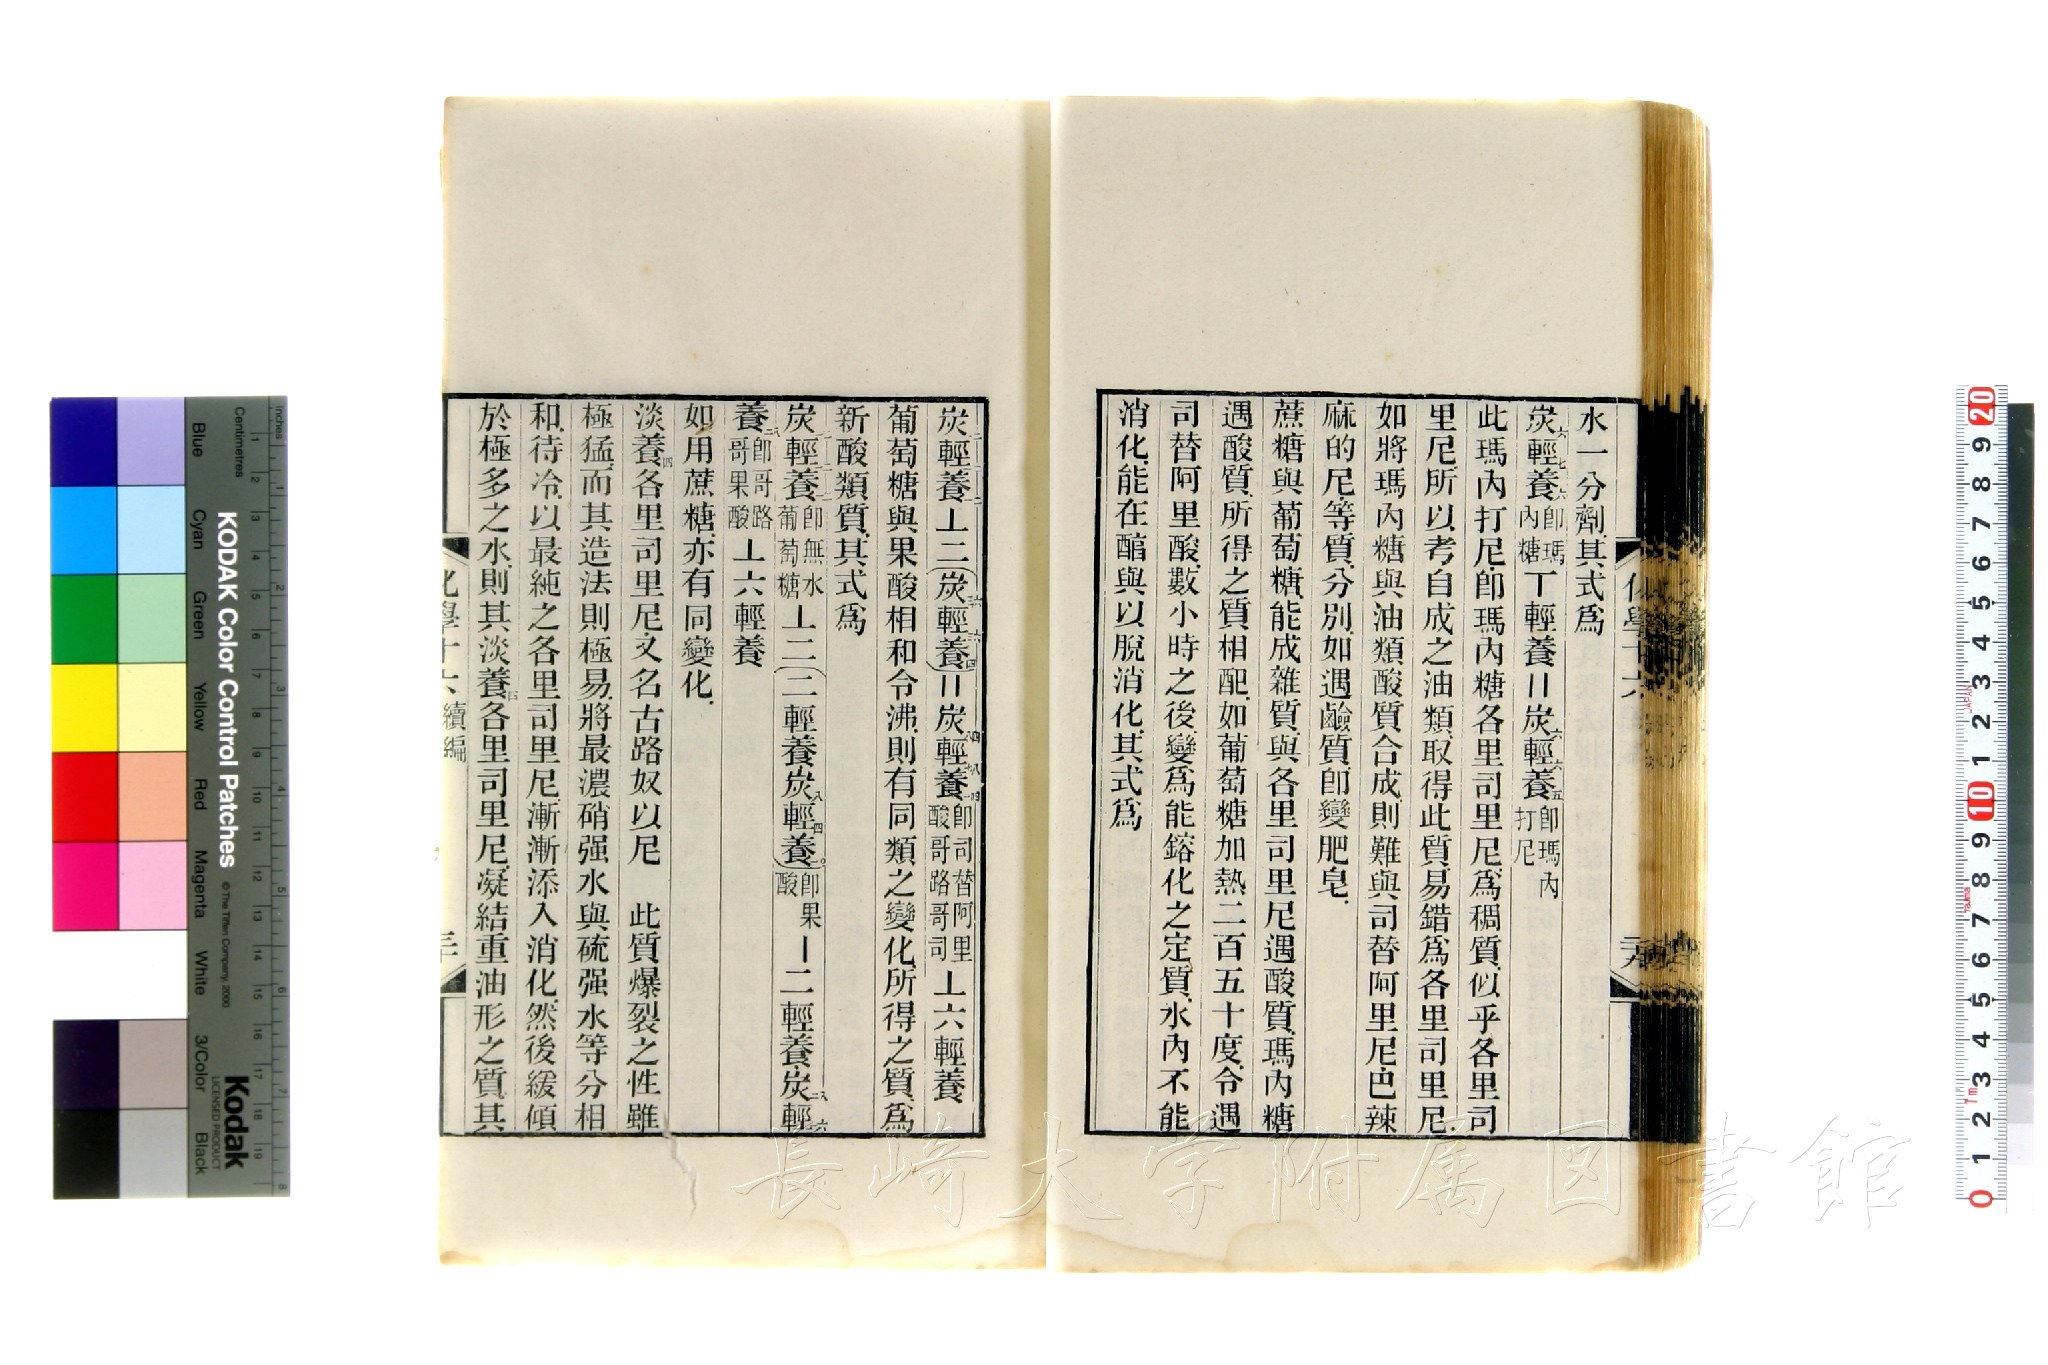 水一分劑其式爲
炭六輕七養六卽瑪內糖丅輕養〢炭六輕六養五卽瑪內打尼
此瑪內打尼卽瑪內糖各里司里尼爲稠質似乎各里司
里尼所以考自成之油類取得此質易錯爲各里司里尼
如將瑪內糖與油類酸質合成則難與司替阿里尼巴辣
麻的尼等質分別如遇鹼質卽變肥皂
蔗糖與葡萄糖能成雜質與各里司里尼遇酸質瑪內糖
遇酸質所得之質相配如葡萄糖加熱二百五十度令遇
司替阿里酸數小時之後變爲能鎔化之定質水內不能
消化能在䤈與以脫消化其式爲
化學十六
炭輕養丄二(炭輕養)〢炭輕養卽司替阿里酸哥路哥司丄六輕養
葡萄糖與果酸相和令沸則有同類之變化所得之質爲
新酸類質其式爲
炭輕養卽無水葡萄糖丄二(二輕養炭八輕四養)卽果酸丨二輕養炭輕
養卽哥路哥果酸丄六輕養
如用蔗糖亦有同變化
淡養四各里司里尼又名古路奴以尼 此質爆裂之性雖
極猛而其造法則極易將最濃硝强水與硫强水等分相
和待冷以最純之各里司里尼漸漸添入消化然後緩傾
於極多之水則其淡養各里司里尼凝結重油形之質其
化學十六續編
KODAK Color Control Patches
© The Tiffen Company, 2000
Kodak
LICENSED PRODUCT
Inches
Centimetres
Blue
Cyan
Green
Yellow
Red
Magenta
White
3/Color
Black
長崎大学附属図書館